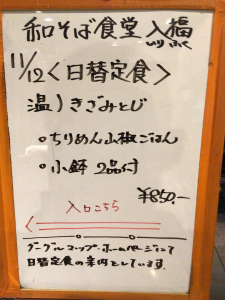 和そば食堂 入福
いりふく
11/12〈日替定食〉
温)きざみとじ
○ちりめん山椒ごはん
○小鉢 2品付
¥850.-
入口こちら
グーグルマップ・ホームページにて
日替定食の案内をしています.